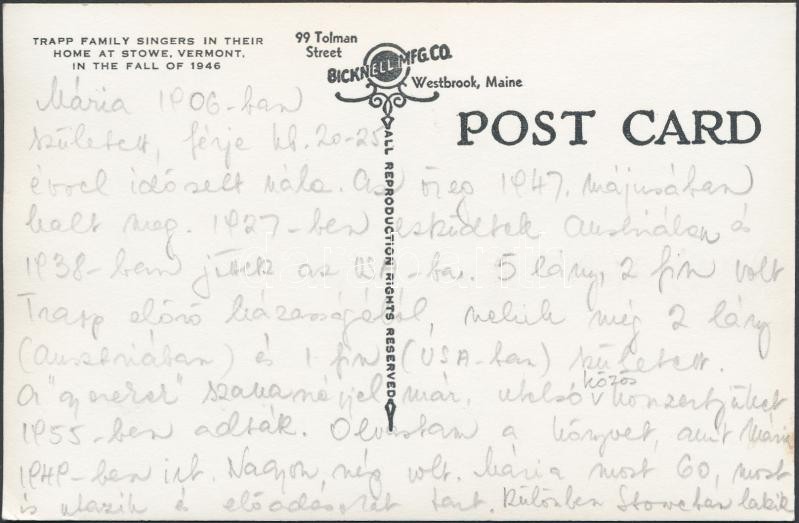 TRAPP FAMILY SINGERS IN THEIR
HOME AT STOWE, VERMONT,
IN THE FALL OF 1946
99 Tolman
Street
BICKNELL MFG. CO.
Westbrook, Maine
POST CARD
ALL REPRODUCTION RIGHTS RESERVED
Mária 1906-ban
született, férje kb. 20-25
évvel idősebb nála. Az öreg 1947. májusában
halt meg. 1927-ben esküdtek Austriában és
1938-ban jöttek az USA-ba. 5 lány, 2 fiú volt
Trapp előző házasságából, nekik még 2 lány
(Austriában) és 1 fiú (USA-ban) született.
A "gyerek" szakanádjel már, utolsó közös konzertjüket
1955-ben adták. Olvastam a könyvet, amit Mária
1949-ben írt. Nagyon, nég volt. Mária most 60, most
is utazik és előadásokat tart. Különben Stoweban lakik